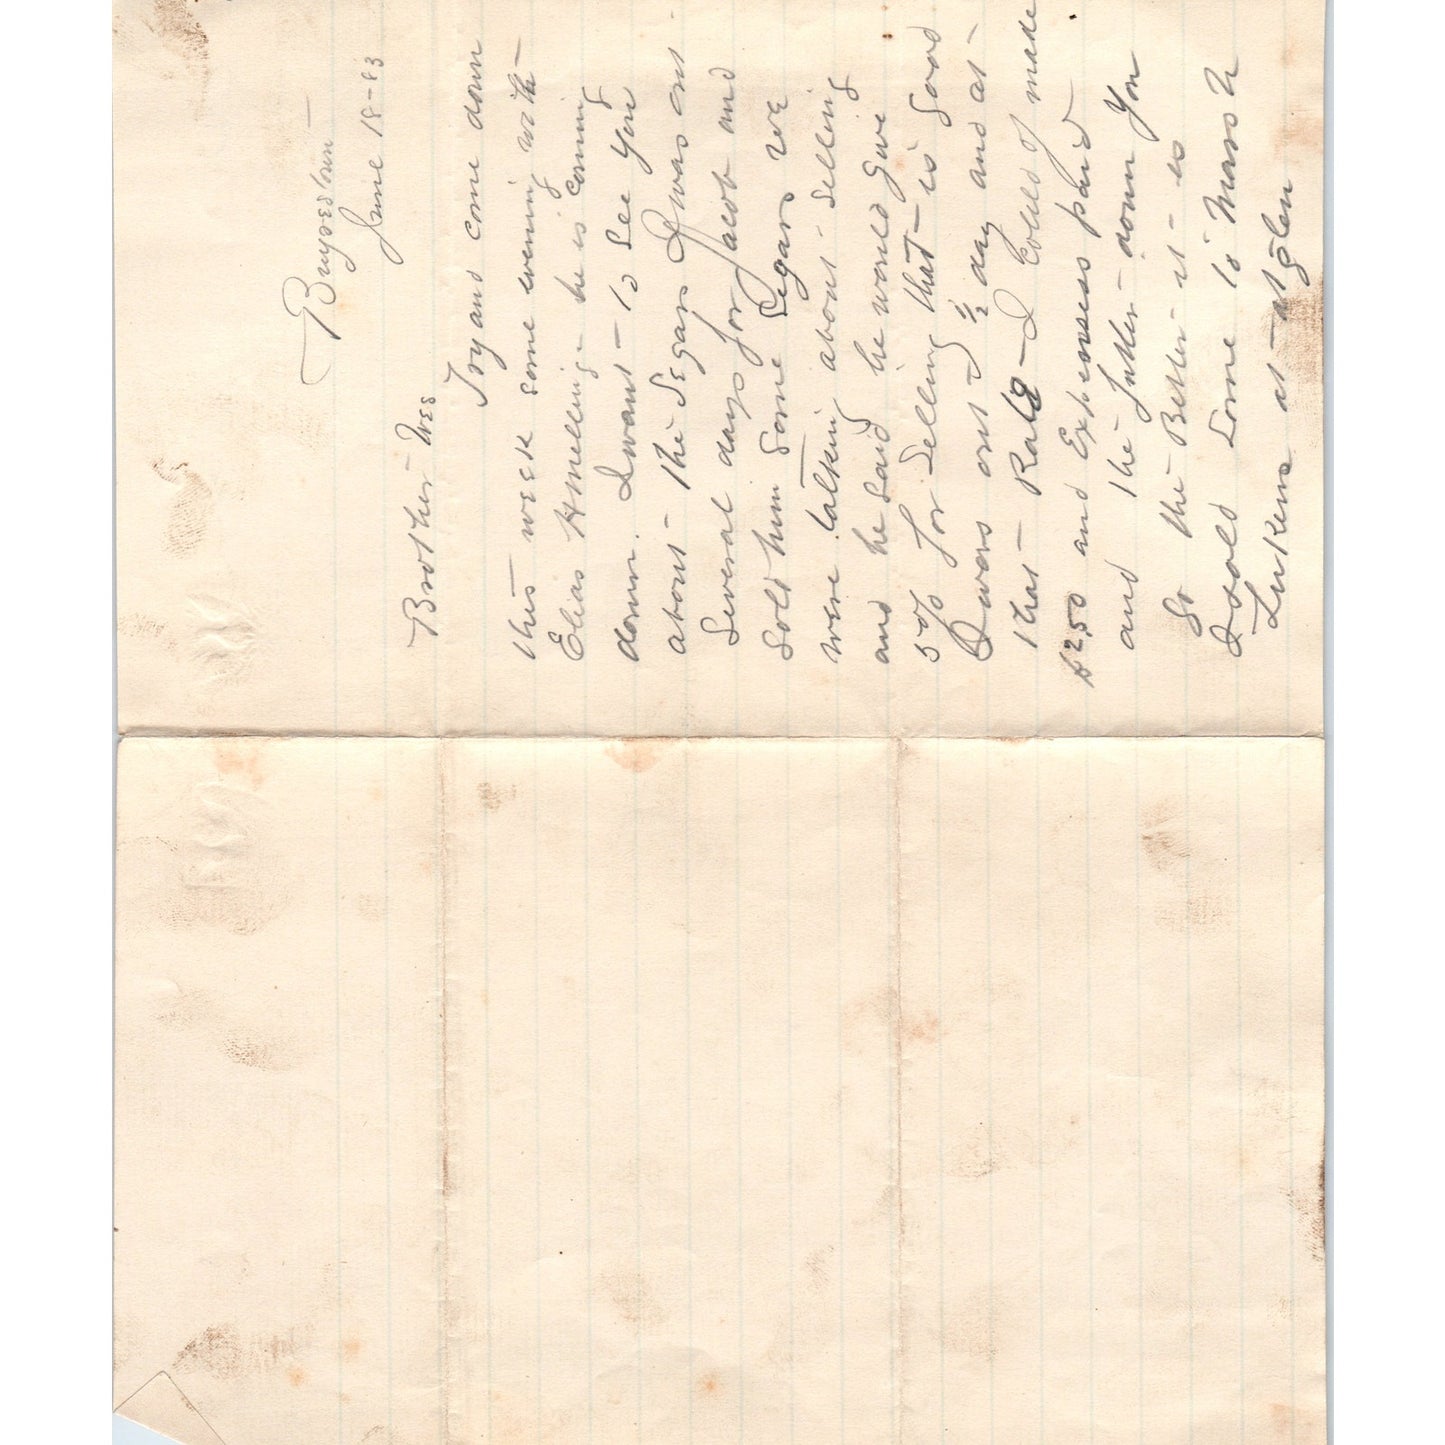 June 18-83
Brother Wes
Try and come down
this week some evening with
Elias Hmelling he is coming
down. I want to see you
about the Segars I was out
Several days for Jacob and
Sold him some Segars we
were talking about selling
and he said he would give
5% for selling that is good
I was out 2 1/2 day and at
that Rate I Could of made
$2.50 and Expenses paid
and the father down you
go the Better it is
I sold some to Marsh
Lukens at Glen